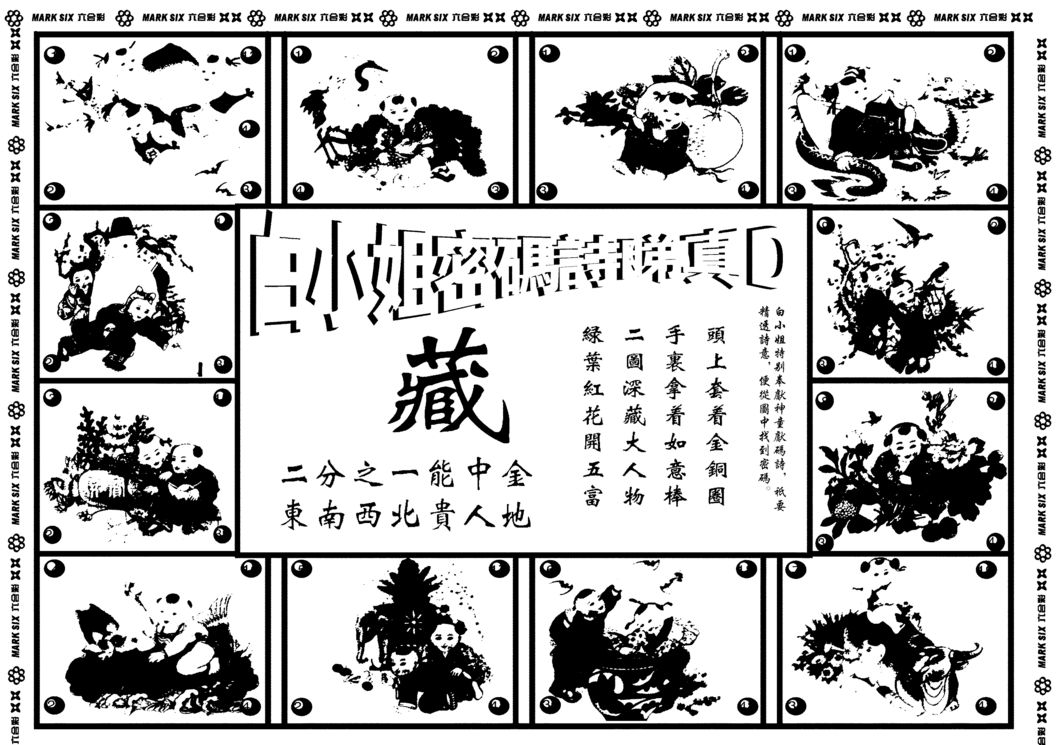 MARK SIX 六合彩 MARK SIX 六合彩 MARK SIX 六合彩 MARK SIX 六合彩 MARK SIX 六合彩 MARK SIX 六合彩 MARK SIX 六合彩 MARK SIX 六合彩
白小姐密碼詩睇真D
白小姐特别奉獻神童獻碼詩，祇要
精透詩意，便從圖中找到密碼。
頭上套着金銅圈
手裏拿着如意棒
二圖深藏大人物
緑葉紅花開五富
藏
二分之一能中金
東南西北貴人地
MARK SIX 六合彩
MARK SIX 六合彩
MARK SIX 六合彩
MARK SIX 六合彩
MARK SIX 六合彩
六合彩
MARK SIX 六合彩
MARK SIX 六合彩
MARK SIX 六合彩
MARK SIX 六合彩
MARK SIX 六合彩
六合彩